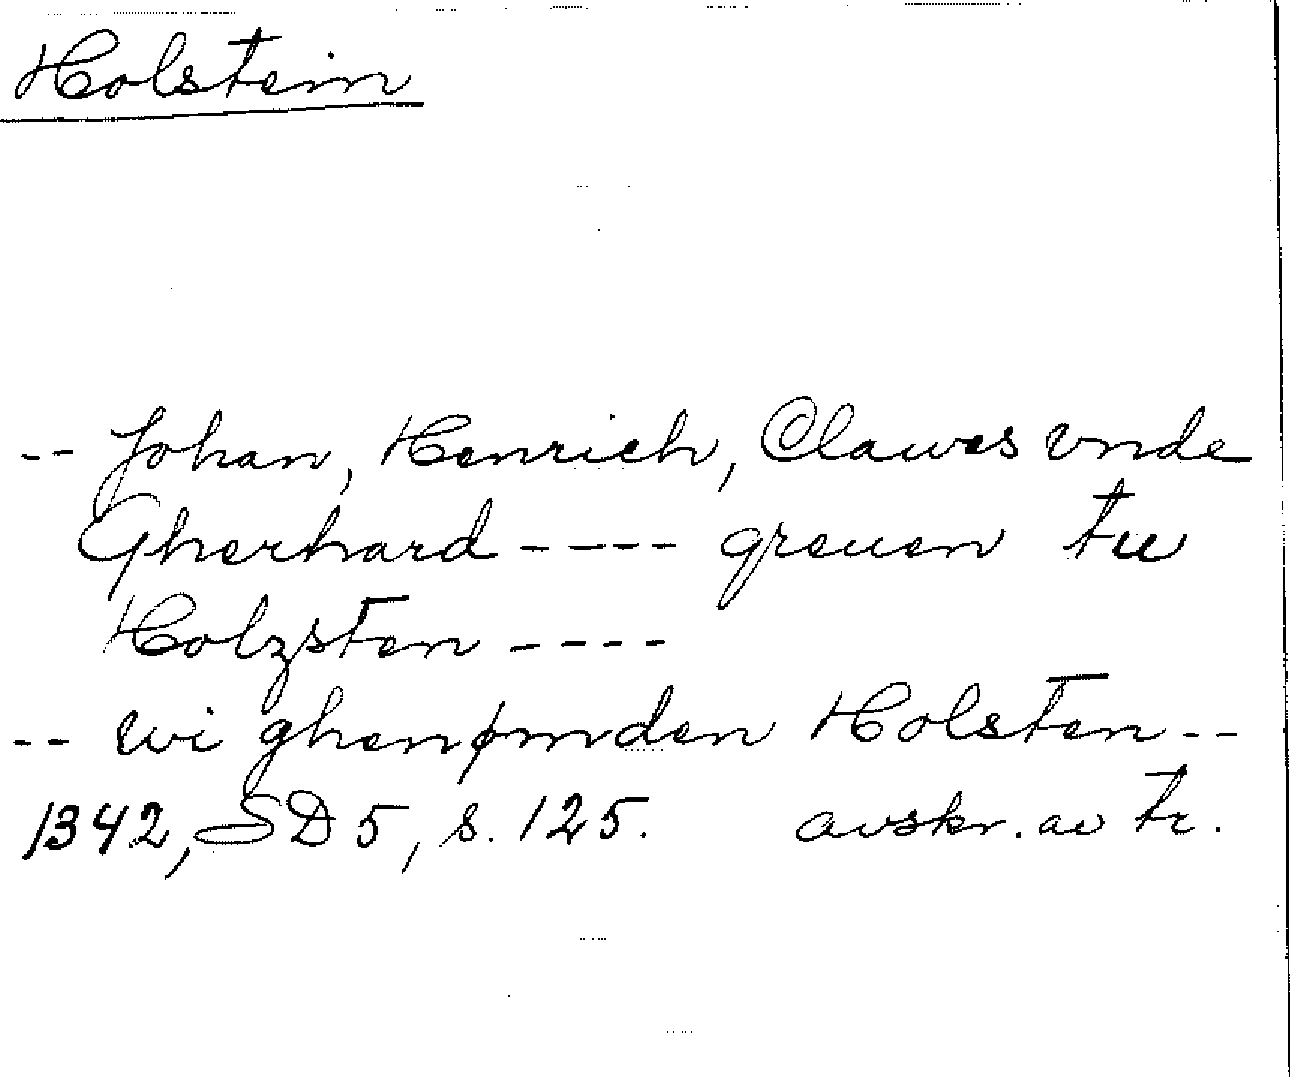 Holstein
-- Johan, Henrich, Clawes vnde
Gherhard ---- greuen tu
Holzsten ----
-- wi ghenømden Holsten --
1342, SD 5, s. 125. avskr. av tr.